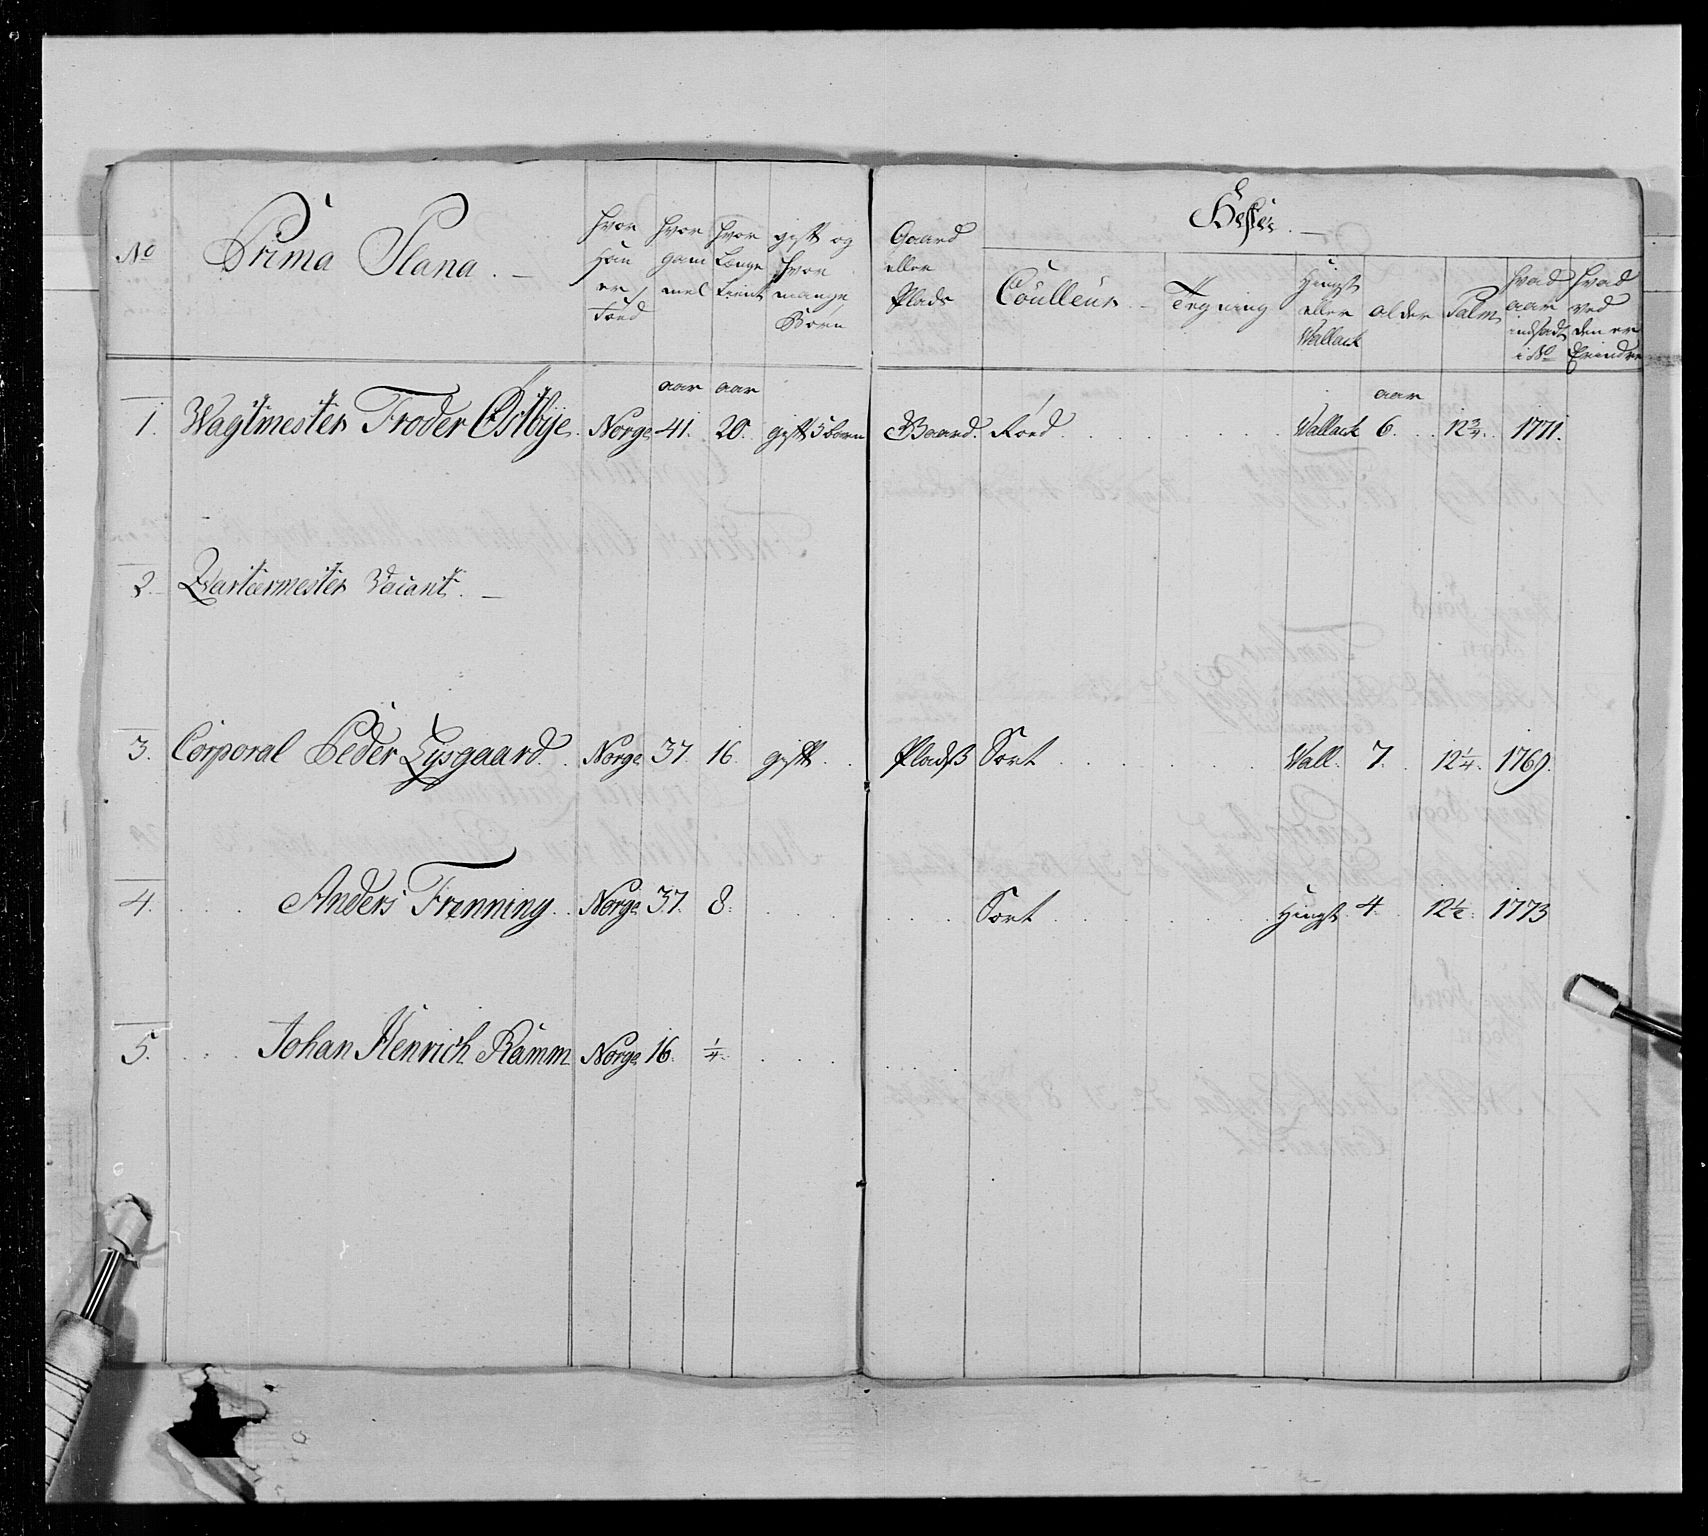 No
Prima Plana. –
hvor
Han
er
Föed
hvor
gam
mel
hvor
Længe
tient
gift og
hvor
mange
Børn
Gaard
eller
Plads
Heste. –
Coulleur. –
Tegning
Hingst
eller
Wallack
alder
Palm
hvad
aar
indsadt
i No
hvad
ved
den er
Erindre
aar aar aar
1. Wagtmester Froder Østbye. Norge. 41. 20. gift 3 børn Gaard. Röed Wallack 6. 12¾. 1771.
2. Qvarteermester Vacant. –
3. Corporal Peder Lysgaard. Norge. 37. 16. gift. Pladß Sort Wall. 7. 12¼. 1769.
4. Anders Frenning. Norge. 37. 8. Sort Hingst 4. 12½. 1773
5. Johan Henrich Ramm Norge. 16. ¼.